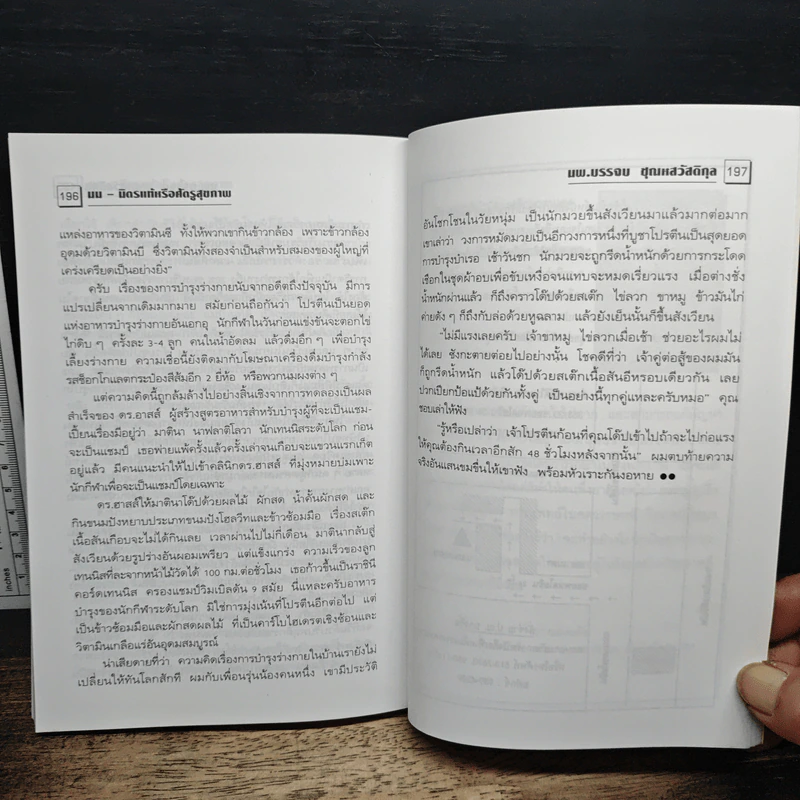 196 นม - มิตรแท้หรือศัตรูสุขภาพ
แหล่งอาหารของวิตามินซี ทั้งให้พวกเขากินข้าวกล้อง เพราะข้าวกล้อง
อุดมด้วยวิตามินบี ซึ่งวิตามินทั้งสองจำเป็นสำหรับสมองของผู้ใหญ่ที่
เคร่งเครียดเป็นอย่างยิ่ง"
ครับ เรื่องของการบำรุงร่างกายนับจากอดีตถึงปัจจุบัน มีการ
แปรเปลี่ยนจากเดิมมากมาย สมัยก่อนถือกันว่า โปรตีนเป็นยอด
แห่งอาหารบำรุงร่างกายอันเอกอุ นักกีฬาในวันก่อนแข่งขันจะตอกไข่
ไก่ดิบๆ ครั้งละ 3-4 ลูก คนในน้ำอัดลม แล้วดื่มอึกๆ เพื่อบำรุง
เลี้ยงร่างกาย ความเชื่อนี้ยังติดมากับโฆษณาเครื่องดื่มบำรุงกำลัง
รสช็อกโกแลตกระป๋องสีส้มอีก 2 ยี่ห้อ หรือพวกนมผงต่างๆ
แต่ความคิดนี้ถูกล้มล้างไปอย่างสิ้นเชิงจากการทดลองเป็นผล
สำเร็จของ ดร.ฮาสส์ ผู้สร้างสูตรอาหารสำหรับบำรุงผู้ที่จะเป็นแชม-
เปี้ยนเรื่องมีอยู่ว่า มาตินา นาฟลาติโลวา นักเทนนิสระดับโลก ก่อน
จะเป็นแชมป์ เธอพ่ายแพ้ครั้งแล้วครั้งเล่าจนเกือบจะแขวนแรกเก็ต
อยู่แล้ว มีคนแนะนำให้ไปเข้าคลินิกดร.ฮาสส์ ที่มุ่งหมายบ่มเพาะ
นักกีฬาเพื่อจะเป็นแชมป์โดยเฉพาะ
ดร.ฮาสส์ให้มาตินาโด๊ปด้วยผลไม้ ผักสด น้ำคั้นผักสด และ
กินขนมปังหยาบประเภทขนมปังโฮลวีทและข้าวซ้อมมือ เรื่องสเต๊ก
เนื้อสันเกือบจะไม่ได้กินเลย เวลาผ่านไปไม่กี่เดือน มาตินากลับสู่
สังเวียนด้วยรูปร่างอันผอมเพรียว แต่แข็งแกร่ง ความเร็วของลูก
เทนนิสที่ละจากหน้าไม้วัดได้ 100 กม.ต่อชั่วโมง เธอก้าวขึ้นเป็นราชินี
คอร์ดเทนนิส ครองแชมป์วิมเบิลดัน 9 สมัย นี่แหละครับอาหาร
บำรุงของนักกีฬาระดับโลก มิใช่การมุ่งเน้นที่โปรตีนอีกต่อไป แต่
เป็นข้าวซ้อมมือและผักสดผลไม้ ที่เป็นคาร์โบไฮเดรตเชิงซ้อนและ
วิตามินเกลือแร่อันอุดมสมบูรณ์
น่าเสียดายที่ว่า ความคิดเรื่องการบำรุงร่างกายในบ้านเรายังไม่
เปลี่ยนให้ทันโลกสักที ผมกับเพื่อนรุ่นน้องคนหนึ่ง เขามีประวัติ
นพ.บรรจบ ชุณหสวัสดิกุล 197
อันโชกโชนในวัยหนุ่ม เป็นนักมวยขึ้นสังเวียนมาแล้วมากต่อมาก
เขาเล่าว่า วงการหมัดมวยเป็นอีกวงการหนึ่งที่บูชาโปรตีนเป็นสุดยอด
การบำรุงบำเรอ เช้าวันชก นักมวยจะถูกรีดน้ำหนักด้วยการกระโดด
เชือกในชุดผ้าอบเพื่อขับเหงื่อจนแทบจะหมดเรี่ยวแรง เมื่อต่างชั่ง
น้ำหนักผ่านแล้ว ก็ถึงคราวโด๊ปด้วยสเต๊ก ไข่ลวก ขาหมู ข้าวมันไก่
ค่ายดังๆ ก็ถึงกับล่อด้วยหูฉลาม แล้วยังเย็นนั้นก็ขึ้นสังเวียน
"ไม่มีแรงเลยครับ เจ้าขาหมู ไข่ลวกเมื่อเช้า ช่วยอะไรผมไม่
ได้เลย ชังกะตายต่อยไปอย่างนั้น โชคดีที่ว่า เจ้าคู่ต่อสู้ของผมมัน
ก็ถูกรีดน้ำหนัก แล้วโด๊ปด้วยสเต๊กเนื้อสันอีหรอบเดียวกัน เลย
ปวกเปียกป้อแป้ด้วยกันทั้งคู่ เป็นอย่างนี้ทุกคู่แหละครับหมอ" คุณ
ชอบเล่าให้ฟัง
"รู้หรือเปล่าว่า เจ้าโปรตีนก้อนที่คุณโด๊ปเข้าไปถ้าจะไปก่อแรง
ให้คุณต้องกินเวลาอีกสัก 48 ชั่วโมงหลังจากนั้น" ผมตบท้ายความ
จริงอันแสนขมขื่นให้เขาฟัง พร้อมหัวเราะกันงอหาย ●●
inches